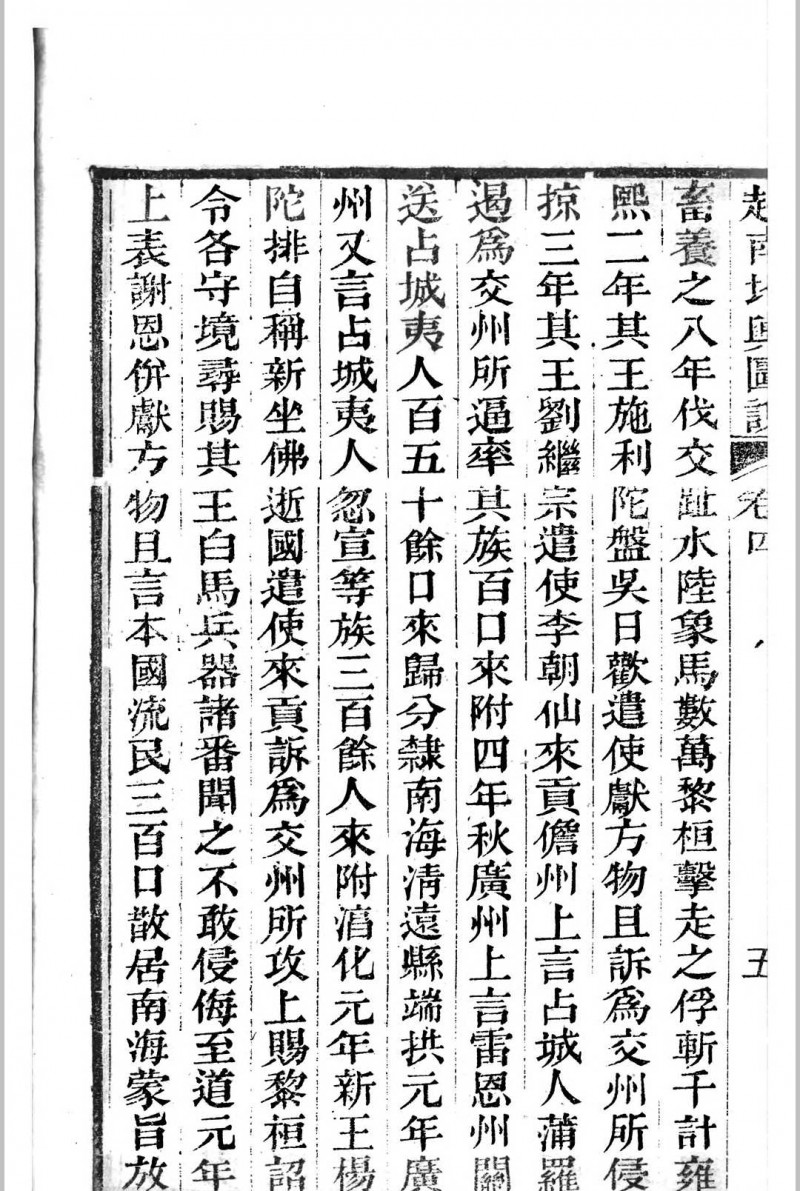 越南地輿圖說 卷四 五
畜養之八年伐交趾水陸象馬數萬黎桓擊走之俘斬千計雍
熙二年其王施利陀盤吳日歡遣使獻方物且訴爲交州所侵
掠三年其王劉繼宗遣使李朝仙來貢儋州上言占城人蒲羅
遏爲交州所逼率其族百口來附四年秋廣州上言雷恩州關
送占城夷人百五十餘口來歸分隸南海清遠縣端拱元年廣
州又言占城夷人忽宣等族三百餘人來附淯化元年新王楊
陀排自稱新坐佛逝國遣使來貢訴爲交州所攻上賜黎桓詔
令各守境尋賜其王白馬兵器諸番聞之不敢侵侮至道元年
上表謝恩倂獻方物且言本國流民三百口散居南海蒙旨放